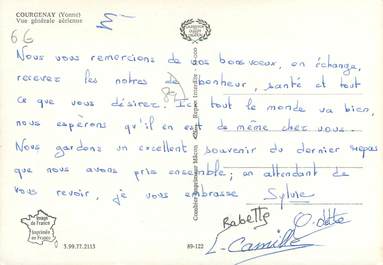 COURGENAY (Yonne)
Vue générale aérienne
66
Nous vous remercions de vos bons voeux, en échange,
recevez les notres de bonheur, santé et tout
ce que vous désirez. Ici tout le monde va bien,
nous espérons qu'il en est de même chez vous.
Nous gardons un excellent souvenir du dernier repas
que nous avons pris ensemble ; en attendant de
vous revoir, je vous embrasse Sylvie
Babette Odette
L. Camille
Image
de France
Imprimée
en France
3.99.77.2113
89-122